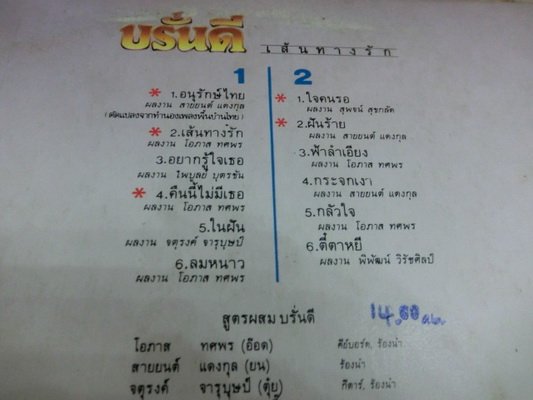 บรั่นดี เส้นทางรัก
1
* 1.อนุรักษ์ไทย
ผลงาน สายยนต์ แดงกุล
(ดัดแปลงจากทำนองเพลงพื้นบ้านไทย)
* 2.เส้นทางรัก
ผลงาน โอภาส ทศพร
3.อยากรู้ใจเธอ
ผลงาน ไพบูลย์ บุตรขัน
* 4.คืนนี้ไม่มีเธอ
ผลงาน โอภาส ทศพร
5.ในฝัน
ผลงาน จตุรงค์ จารุบุษป์
6.ลมหนาว
ผลงาน โอภาส ทศพร
2
* 1.ใจคนรอ
ผลงาน สุพจน์ สุขกลัด
* 2.ฝันร้าย
ผลงาน สายยนต์ แดงกุล
3.ฟ้าลำเอียง
ผลงาน โอภาส ทศพร
4.กระจกเงา
ผลงาน สายยนต์ แดงกุล
5.กลัวใจ
ผลงาน โอภาส ทศพร
6.ตี๋ตาหยี
ผลงาน พิพัฒน์ วิรัชศิลป์
14.00
สูตรผสม บรั่นดี
โอภาส ทศพร (อ๊อด) คีย์บอร์ด, ร้องนำ
สายยนต์ แดงกุล (ยน) ร้องนำ
จตุรงค์ จารุบุษป์ (ตุ๋ย) กีตาร์, ร้องนำ